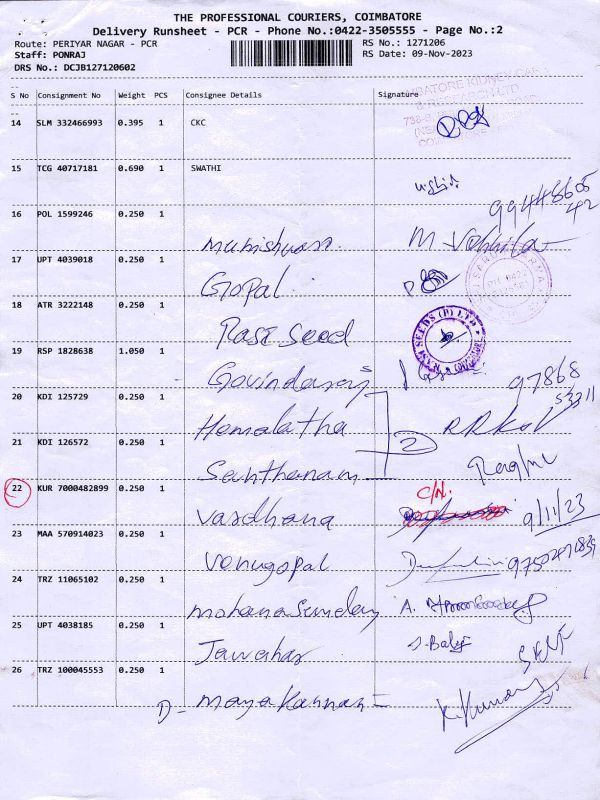 THE PROFESSIONAL COURIERS, COIMBATORE
Delivery Runsheet - PCR - Phone No.:0422-3505555 - Page No.:2
Route: PERIYAR NAGAR - PCR
Staff: PONRAJ
DRS No.: DCJB127120602
RS No.: 1271206
RS Date: 09-Nov-2023
S No Consignment No Weight PCS Consignee Details Signature
14 SLM 332466993 0.395 1 CKC
15 TCG 40717181 0.690 1 SWATHI
99448605
42
16 POL 1599246 0.250 1 Munishwari.
17 UPT 4039018 0.250 1 Gopal
18 ATR 3222148 0.250 1 Rasi Seed
RASI SEEDS (P) LTD
19 RSP 1828638 1.050 1 Govindaraj
97868
53311
20 KDI 125729 0.250 1 Hemalatha
2
21 KDI 126572 0.250 1 Santhanam
Raghu
22 KUR 7000482899 0.250 1 Vardhana
C/N.
9/11/23
23 MAA 570914023 0.250 1 Venugopal
24 TRZ 11065102 0.250 1 mohana Sundary A.
25 UPT 4038185 0.250 1 Jawahar
SELF
26 TRZ 100045553 0.250 1 D- mayakannan
K. Kumar